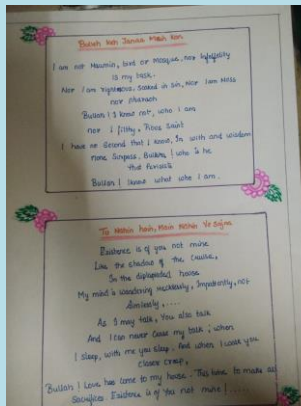 Bullah keh Janaa Mein kon
I am not Moumin, bird or Mosque, nor infidelity
is my task.
Nor I am righteous, soaked in sin, Nor I am Moses
nor pharaoh
Bullah I know not, who I am
nor I filthy, Pious Saint
I have no second that I know, In with and wisdom
none Surpass, Bullah, who is he
that
Bullah I know what who I am.
To Nahin hain, Mein Nahin Ve Sajna
Existence is of you not mine
Like the shadow of the cause,
In the house
My mind's wandering recklessly, Impatiently, not
Aimlessly,....
As I may talk, You also talk
And I can never cause my talk; when
I sleep, with me you sleep. And when I walk you
closer creep,
Bullah I Love has come to my house. to make all
Sacrifices. Existence is of You not mine!.....